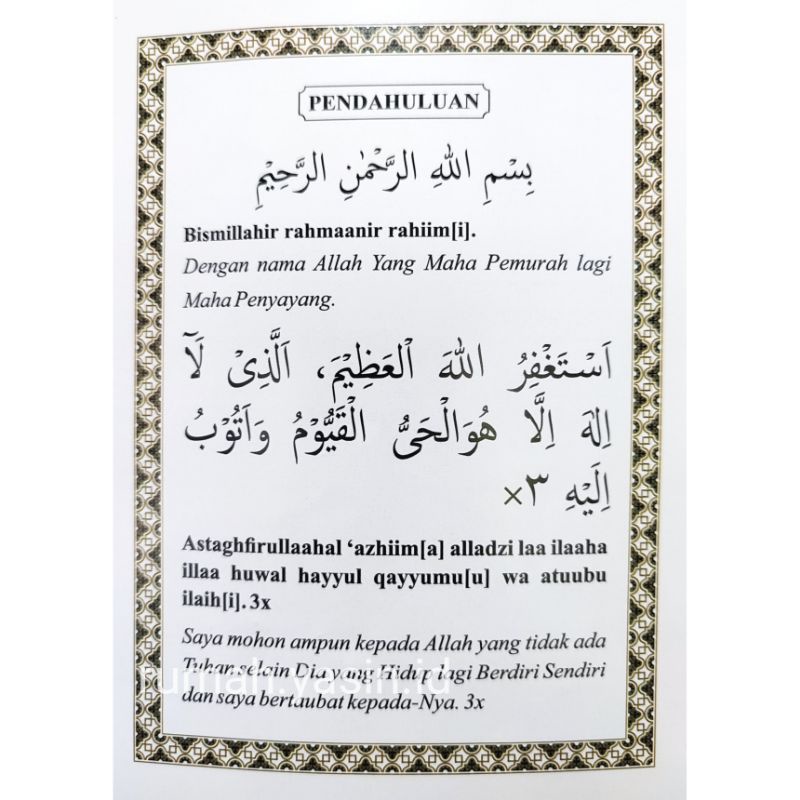 PENDAHULUAN
بِسْمِ اللهِ الرَّحْمٰنِ الرَّحِيْمِ
Bismillahir rahmaanir rahiim[i].
Dengan nama Allah Yang Maha Pemurah lagi
Maha Penyayang.
اَسْتَغْفِرُ اللهَ الْعَظِيْمَ، اَلَّذِىْ لَآ
اِلٰهَ اِلَّا هُوَالْحَىُّ الْقَيُّوْمُ وَاَتُوْبُ
اِلَيْهِ ×٣
Astaghfirullaahal ‘azhiim[a] alladzi laa ilaaha
illaa huwal hayyul qayyumu[u] wa atuubu
ilaih[i]. 3x
Saya mohon ampun kepada Allah yang tidak ada
Tuhan selain Dia yang Hidup lagi Berdiri Sendiri
rumah.yasin.id
dan saya bertaubat kepada-Nya. 3x